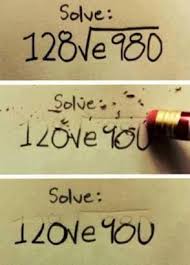 Solve:
128√e980
Solve:
I LOVe YOU
Solve:
I LOVe YOU